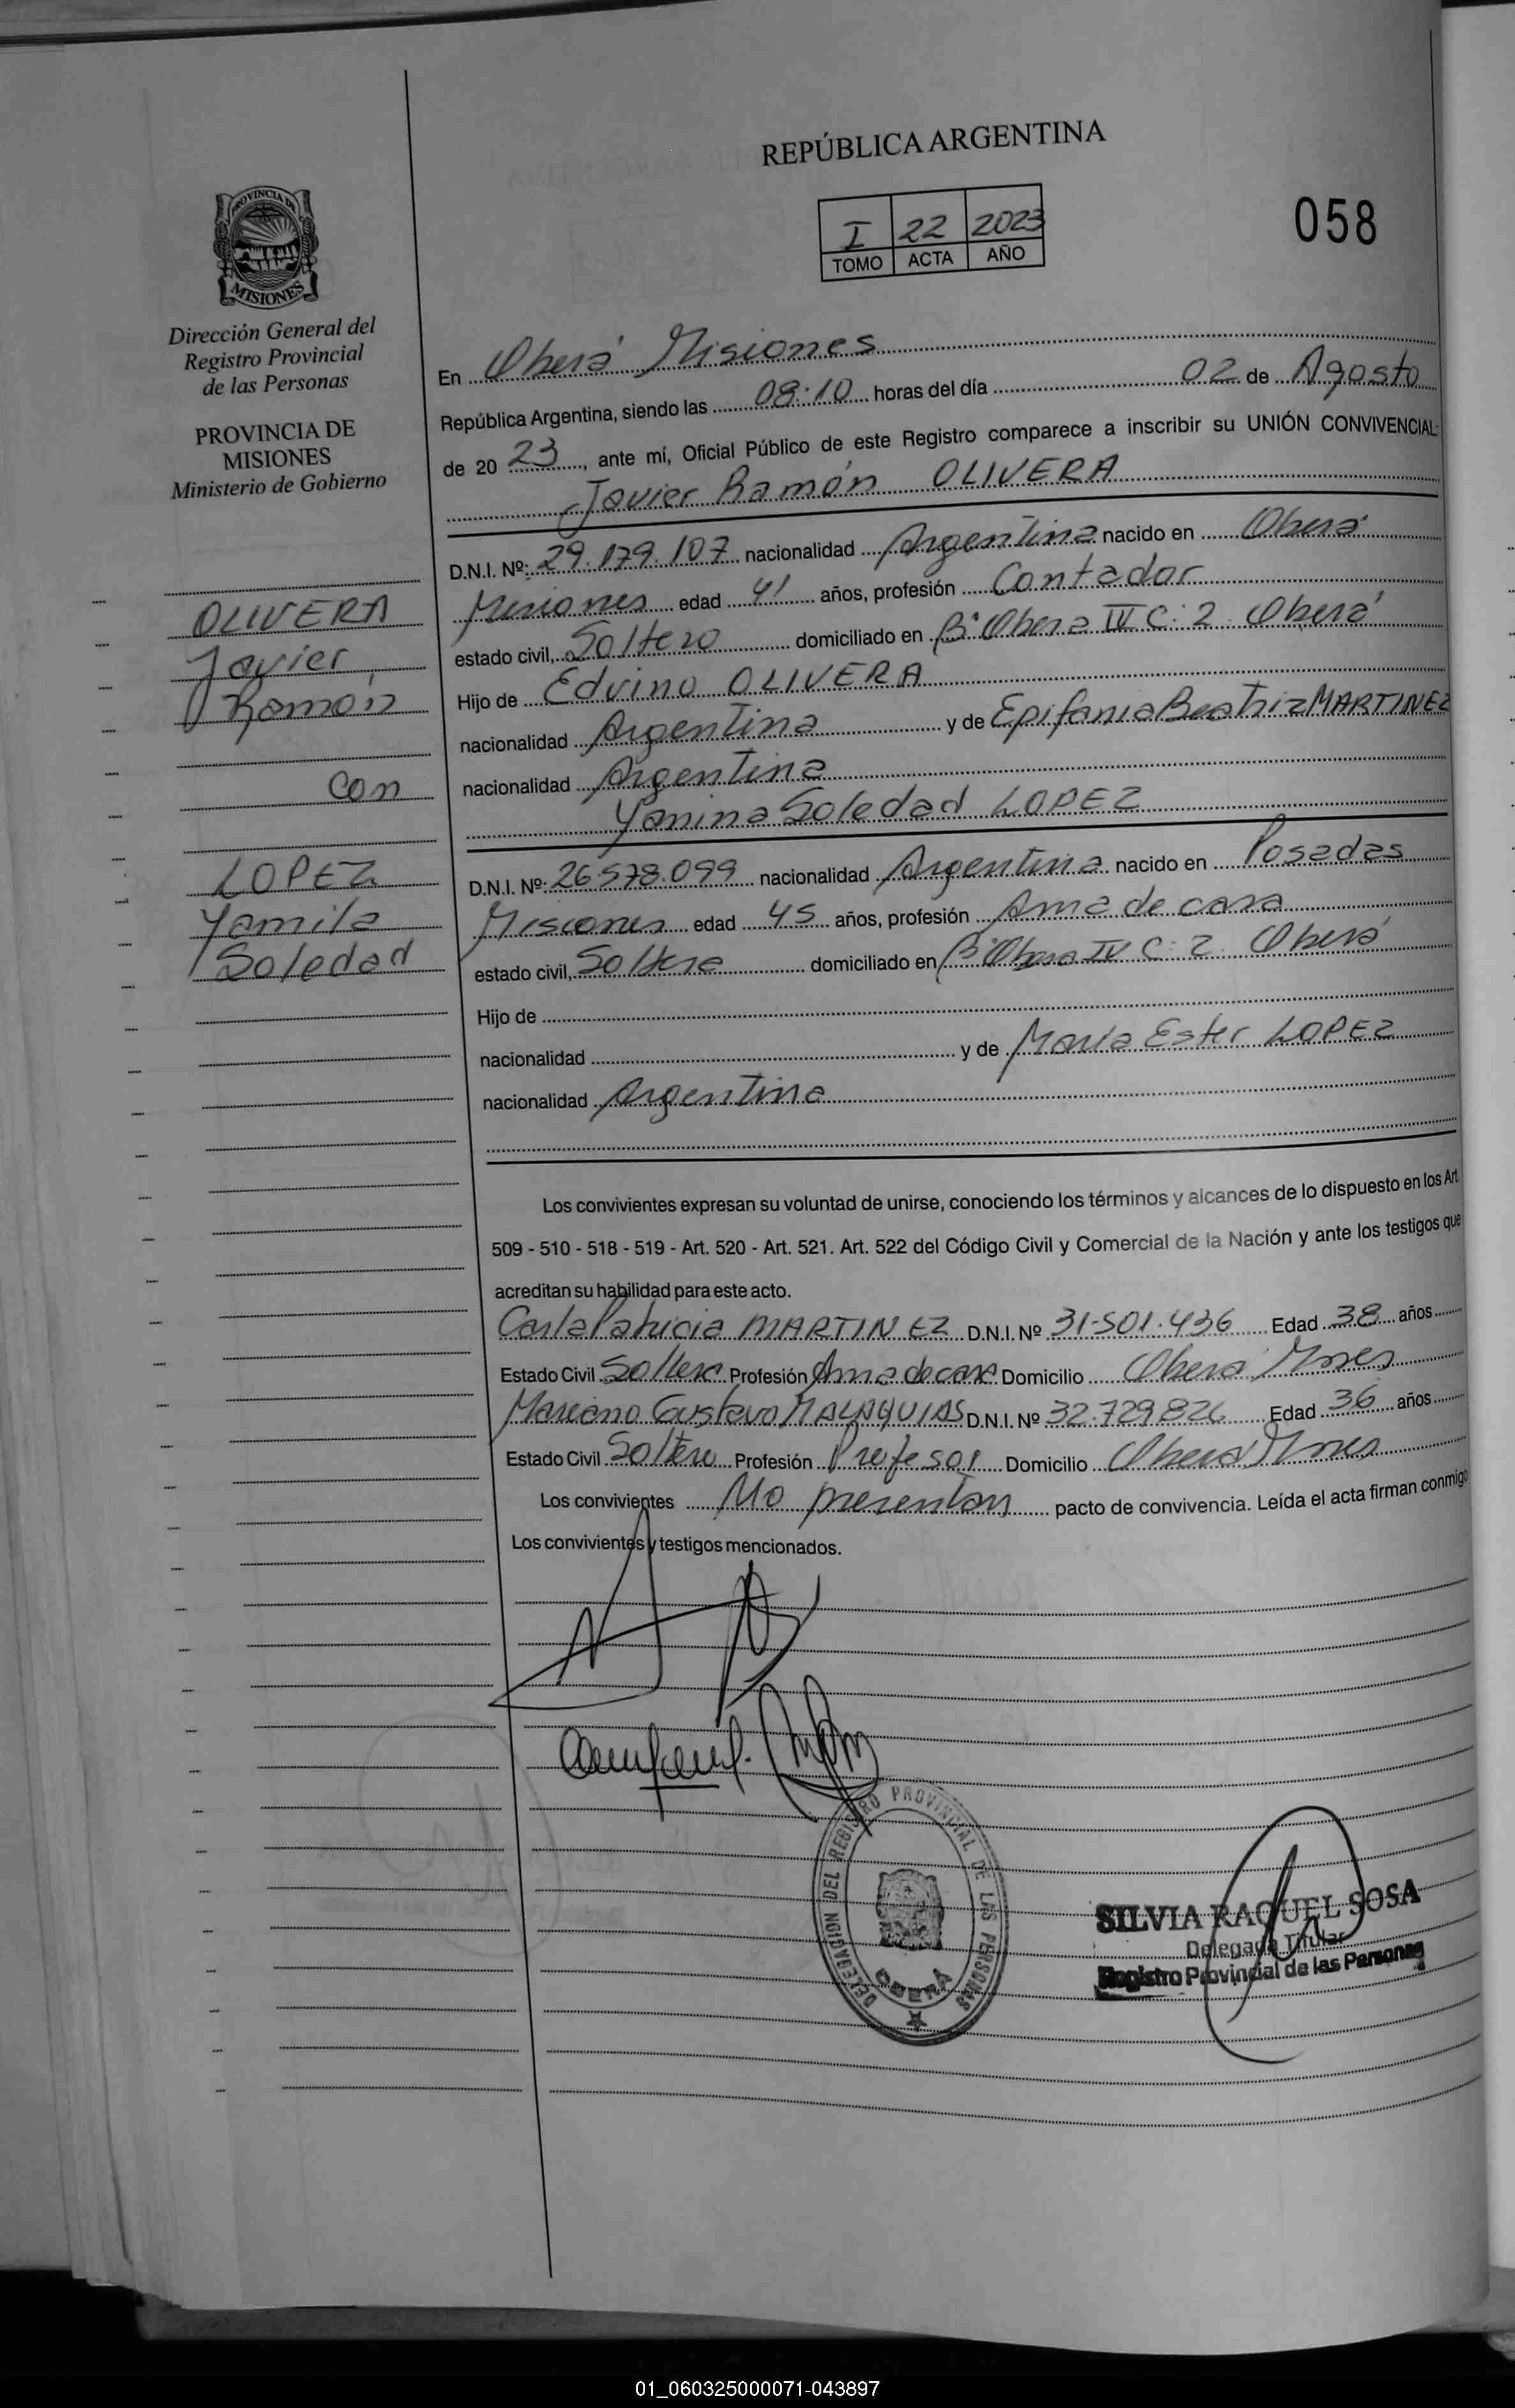 REPÚBLICA ARGENTINA
I 22 2023
TOMO ACTA AÑO
058
PROVINCIA DE
MISIONES
Dirección General del
Registro Provincial
de las Personas
PROVINCIA DE
MISIONES
Ministerio de Gobierno
OLIVERA
Javier
Ramón
con
LOPEZ
Yamila
Soledad
En Oberá Misiones
República Argentina, siendo las 08:10 horas del día 02 de Agosto
de 20 23, ante mí, Oficial Público de este Registro comparece a inscribir su UNIÓN CONVIVENCIAL:
Javier Ramón OLIVERA
D.N.I. Nº: 29.179.107 nacionalidad Argentina nacido en Oberá
Misiones edad 41 años, profesión Contador
estado civil, Soltero domiciliado en B° Oberá IV C: 2 Oberá
Hijo de Edvino OLIVERA
nacionalidad Argentina y de Epifania Beatriz MARTINEZ
nacionalidad Argentina
Yanina Soledad LOPEZ
D.N.I. Nº: 26.578.099 nacionalidad Argentina nacido en Posadas
Misiones edad 45 años, profesión Ama de casa
estado civil, Soltera domiciliado en B° Oberá IV C: 2 Oberá
Hijo de
nacionalidad y de María Ester LOPEZ
nacionalidad Argentina
Los convivientes expresan su voluntad de unirse, conociendo los términos y alcances de lo dispuesto en los Art.
509 - 510 - 518 - 519 - Art. 520 - Art. 521. Art. 522 del Código Civil y Comercial de la Nación y ante los testigos que
acreditan su habilidad para este acto.
Carla Patricia MARTINEZ D.N.I. Nº 31.501.436 Edad 38 años
Estado Civil Soltera Profesión Ama de casa Domicilio Oberá Mnes
Mariano Gustavo MALAQUIAS D.N.I. Nº 32.729.826 Edad 36 años
Estado Civil Soltero Profesión Profesor Domicilio Oberá Mnes
Los convivientes No presentan pacto de convivencia. Leída el acta firman conmigo
Los convivientes y testigos mencionados.
DELEGACION DEL REGISTRO PROVINCIAL DE LAS PERSONAS
OBERA
SILVIA RAQUEL SOSA
Delegada Titular
Registro Provincial de las Personas
01_060325000071-043897